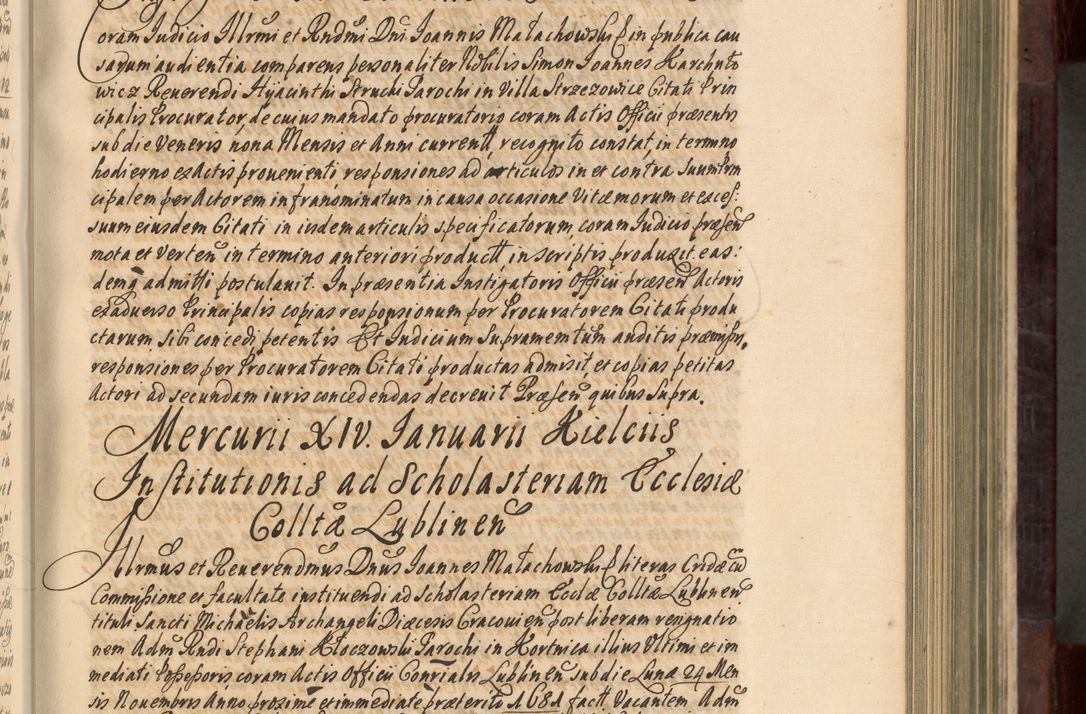 Coram Judicio Illrmi et Rndmi Dni Joannis Małachowski E in publica cau
sarum audientia comparens personaliter Nobilis Simon Joannes Karchnto
wicz Reuerendi Hyacinthi Struchi Parochi in Villa Strzezowice Citati Prin
cipalis Procurator, de cuius mandato procuratorio coram Actis Officii præsentis
sub die Veneris nona Mensis et Anni currentt, recognito constat, in termino
hodierno ex Actis prouenienti, responsiones ad articulos in et contra suum Prin
cipalem per Actorem infranominatum in causa occasione Vitæ morum et exces:
suum eiusdem Citati in iisdem articulis specificatorum, coram Judicio præsen
mota et Verten in termino anteriori productt, in scriptis produxit eas:
demq admitti postulauit. In præsentia Instigatoris Officii præsen Actoris
ex aduerso Principalis copias responsionum per Procuratorem Citati produ
ctarum sibi concedi petentis Et Judicium Supramentum auditis præmissis,
responsiones per Procuratorem Citati productas admisit, et copias petitas
Actori ad secundam iuris concedendas decreuit Præsen quibus supra.
Mercurii XIV. Januarii Kielciis
Institutionis ad Scholasteriam Ecclesiæ
Colltæ Lublinen
Illrmus et Reuerendmus Dnus Joannes Małachowski E literas Cridæ cu
Commissione et facultate instituendi ad Scholasteriam Ecclæ Colltæ Lublinen
tituli Sancti Michaëlis Archangeli Diæcesis Cracouien post liberam resignatio
nem Adm Rndi Stephani Kłoczowski Parochi in Kortnica illius Vltimi et im
mediati Possessoris coram Actis Officii Conrialis Lublinen sub die Lunæ 24 Men
sis Nouembris Anno proxime et immediate præterito 1681 factt Vacantem Adm